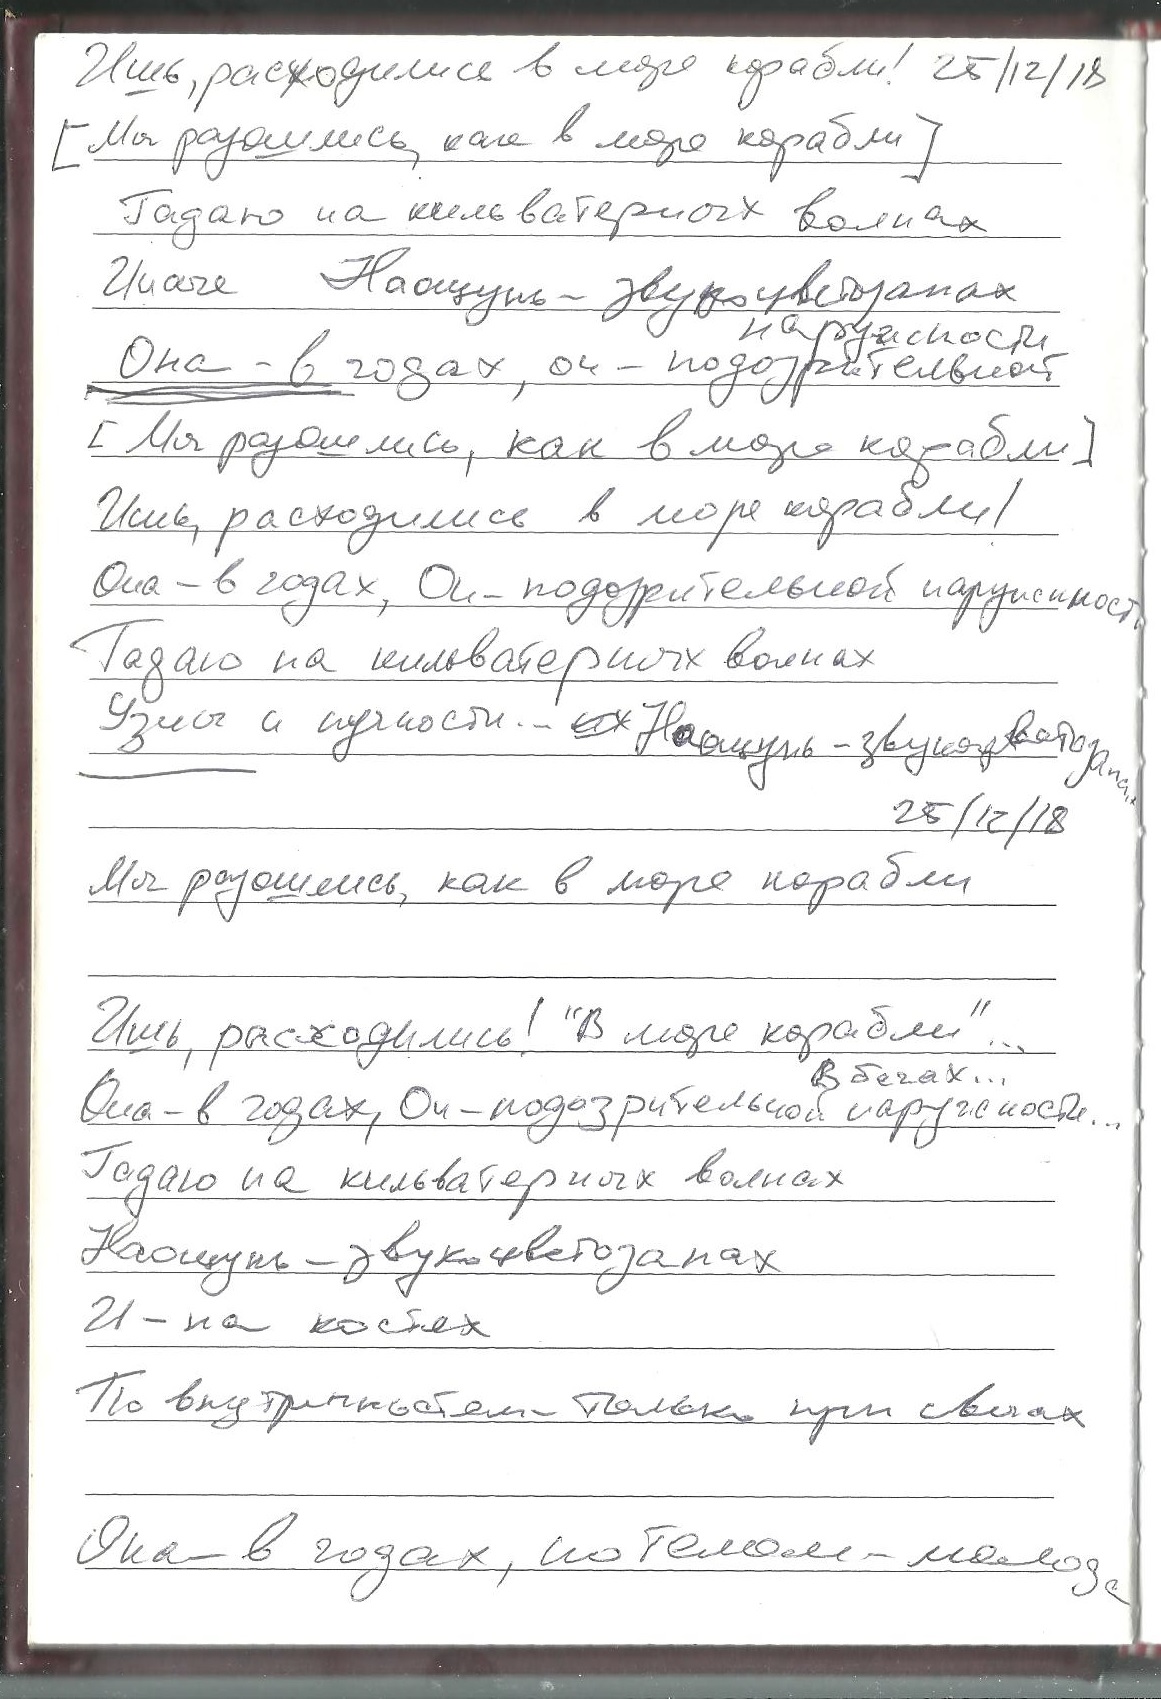 Ишь, расходились в море корабли! 25/12/18
[Мы разошлись, как в море корабли]
Гадаю на кильватерных волнах
Иначе Наощупь – звукоцветозапах
наружности
Она – в годах, он – подозрительной
[Мы разошлись, как в море корабли]
Ишь, расходились в море корабли!
Она – в годах, Он – подозрительной наружности
Гадаю на кильватерных волнах
Узлы и нужности... Наощупь – звукоцветозапах
25/12/18
Мы разошлись, как в море корабли
Ишь, расходились! "В море корабли"...
В бегах...
Она – в годах, Он – подозрительной наружности...
Гадаю на кильватерных волнах
Наощупь – звукоцветозапах
И – на костях
По внутренностям – только при свечах
Она – в годах, но телом – молода